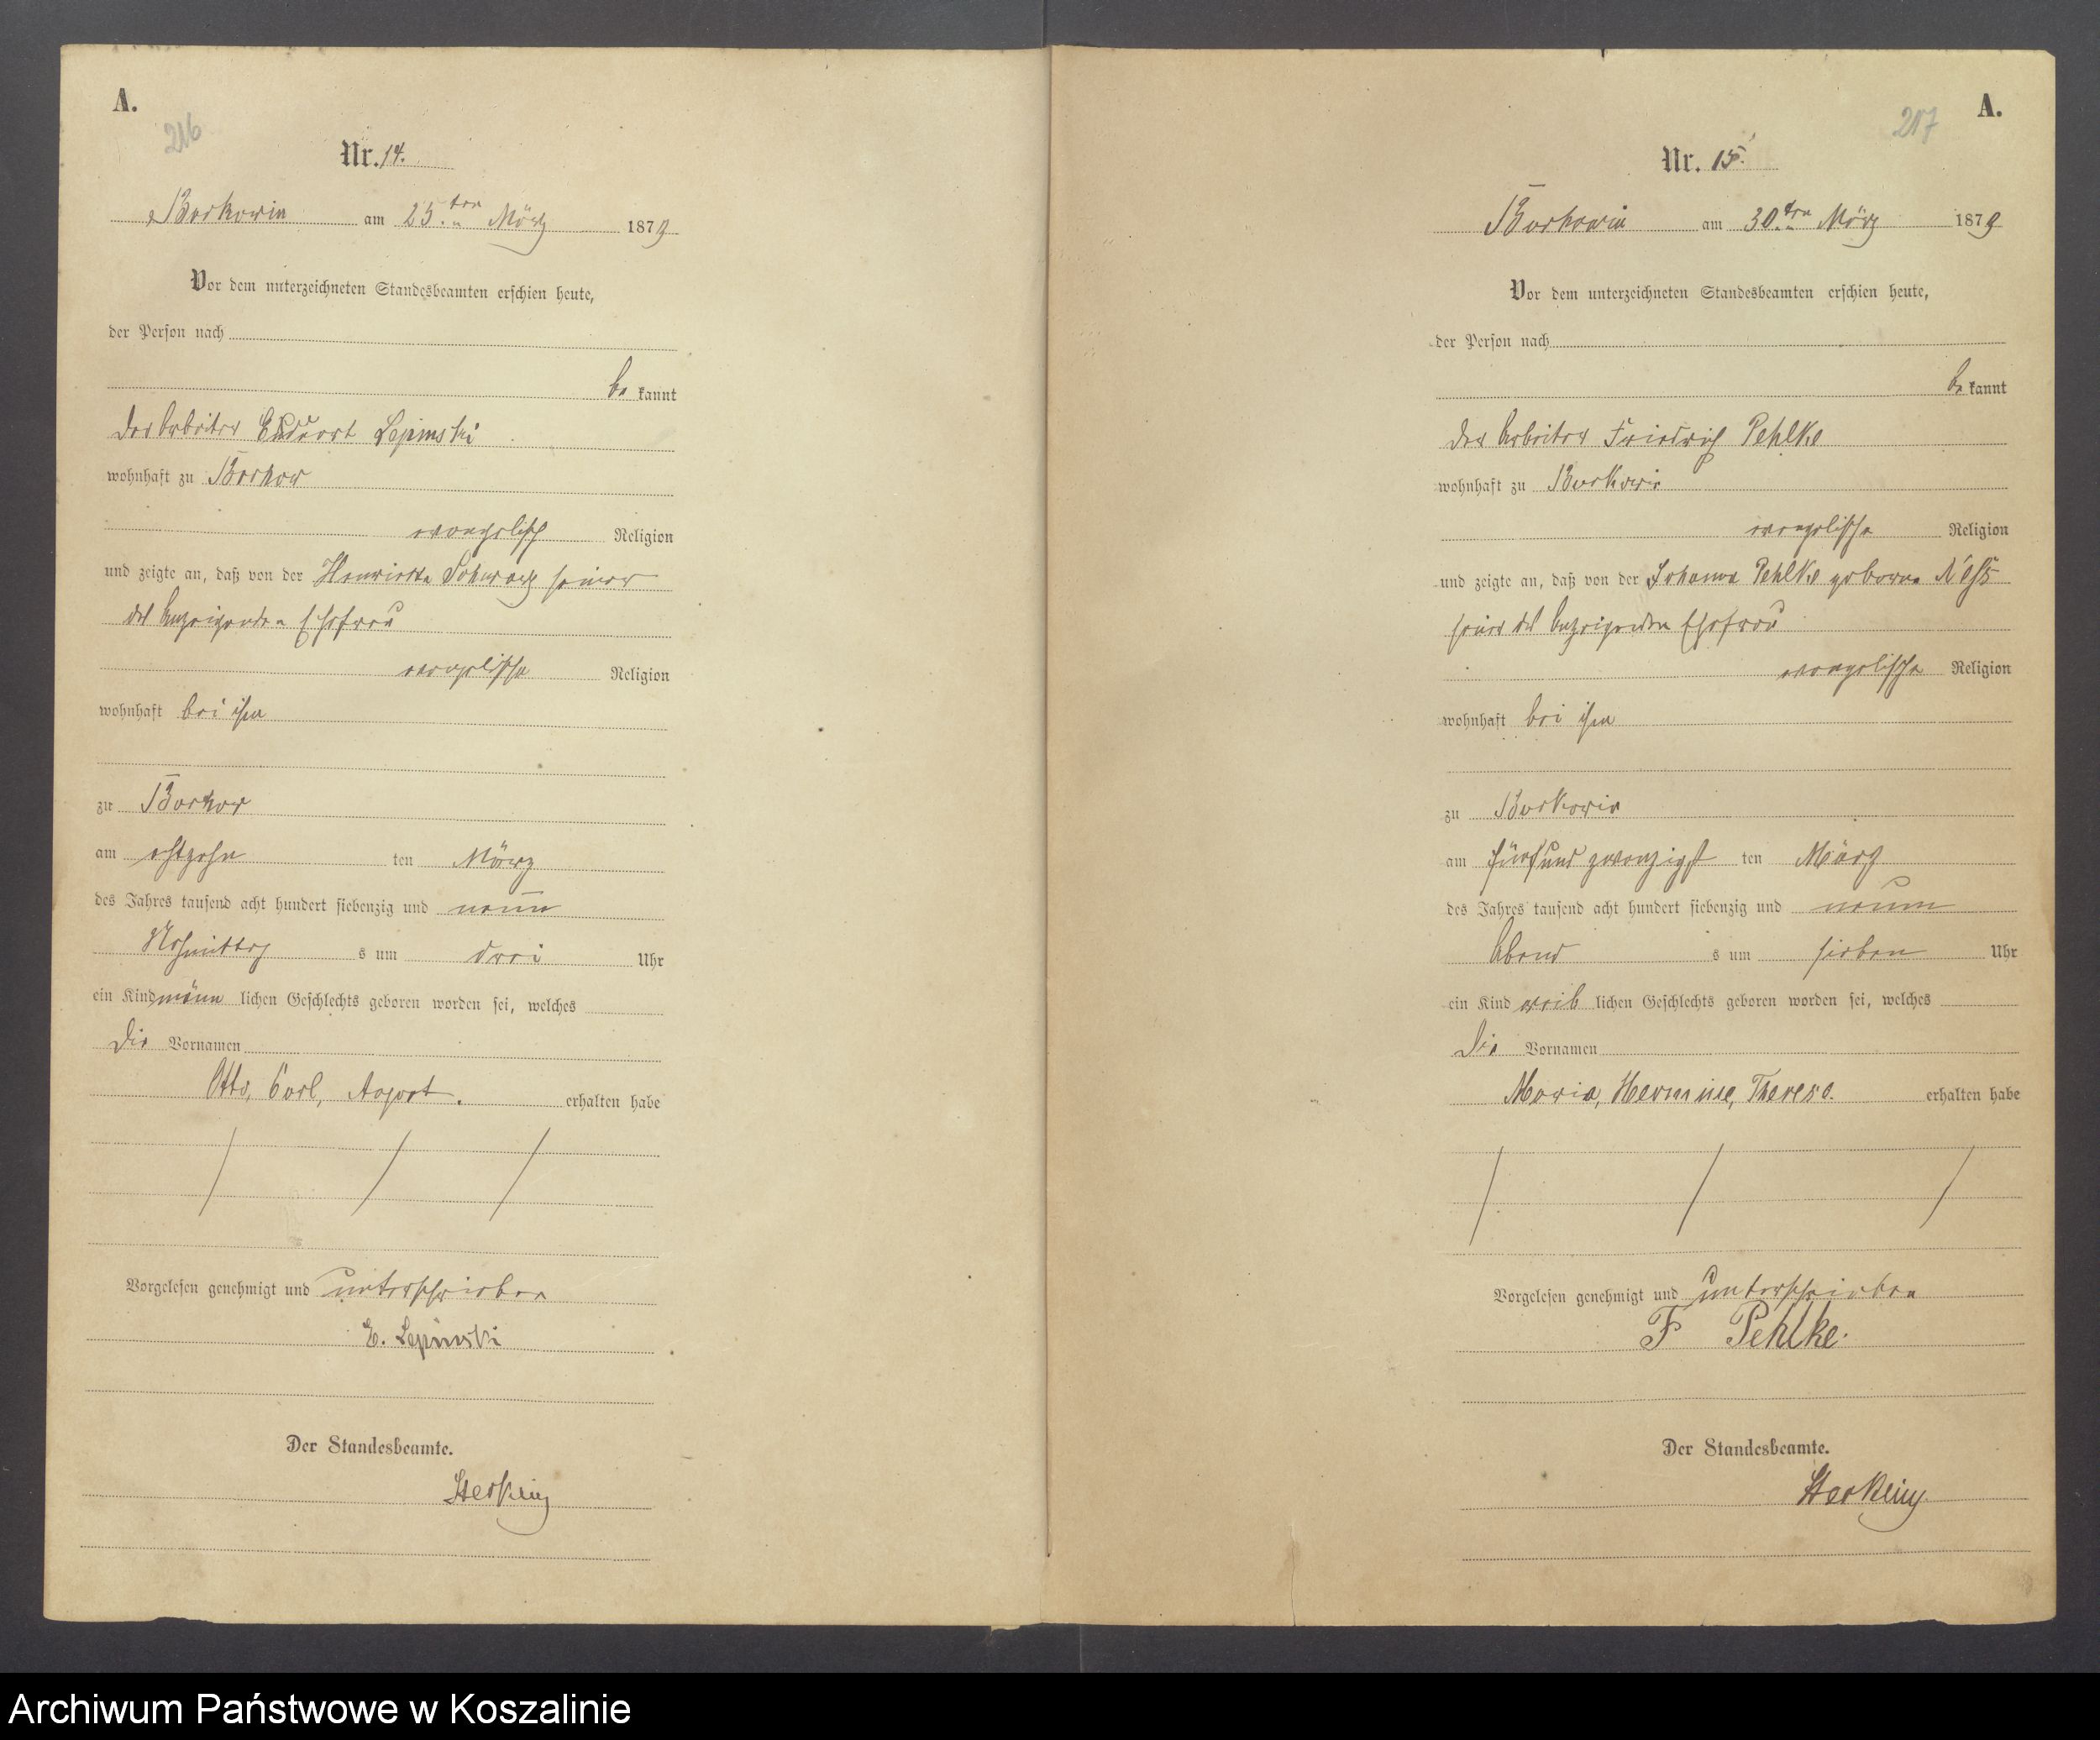 A.
216
Nr. 14.
Borkowin am 25.ten März 1879
Vor dem unterzeichneten Standesbeamten erschien heute,
der Person nach
be kannt
der Arbeiter Eduart Lepinski
wohnhaft zu Borkow
evangelisch Religion
und zeigte an, daß von der Henriette Schwarz seiner
des Anzeigenden Ehefrau
evangelische Religion
wohnhaft bei ihm
zu Borkow
am achtzehn ten März
des Jahres tausend acht hundert siebenzig und neun
Nachmittag s um drei Uhr
ein Kind männ lichen Geschlechts geboren worden sei, welches
die Vornamen
Otto, Carl, August. erhalten habe
Vorgelesen genehmigt und unterschrieben
E. Lepinski
Der Standesbeamte.
A.
217
Nr. 15.
Borkowin am 30.ten März 1879
Vor dem unterzeichneten Standesbeamten erschien heute,
der Person nach
be kannt
der Arbeiter Friedrich Pehlke
wohnhaft zu Borkowin
evangelische Religion
und zeigte an, daß von der Johanna Pehlke geborene
seiner des Anzeigenden Ehefrau
evangelische Religion
wohnhaft bei ihm
zu Borkowin
am fünfundzwanzigst ten März
des Jahres tausend acht hundert siebenzig und neun
Abend s um sieben Uhr
ein Kind weib lichen Geschlechts geboren worden sei, welches
die Vornamen
Maria, Hermine, Therese. erhalten habe
Vorgelesen genehmigt und unterschrieben
F Pehlke.
Der Standesbeamte.
Archiwum Państwowe w Koszalinie